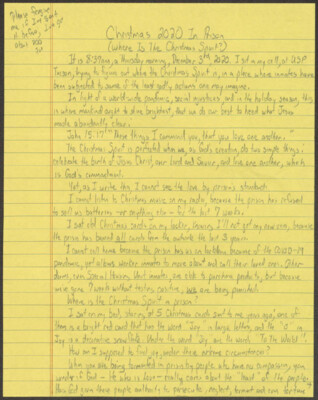 Please forgive
me if I've sent
it before,
also did
Christmas 2020 In Prison
(Where Is the Christmas Spirit?)
It is 8:37am, a Thursday morning, December 3rd, 2020. I sit in my cell, at USP
Tucson, trying to figure out where the Christmas Spirit is, in a place where inmates have
been subjected to some of the least godly actions one may imagine.
In light of a world-wide pandemic, social injustices and in the holiday season, this
is when mankind ought to shine brightest, that we do our best to heed what Jesus
made abundantly clear:
John 15:17 "These things I command you, that you love one another."
The Christmas Spirit is perfected when we, as God's creation, do two simple things:
celebrate the birth of Jesus Christ, our Lord and Savior, and love one another, which
is God's commandment.
Yet, as I write this, I cannot see the love by prison's standards.
I cannot listen to Christmas music on my radio, because the prison has refused
to sell us batteries nor anything else for the last 7 weeks.
I see old Christmas cards on my locker, knowing I'll not get any new ones, because
the prison has banned all cards from the outside the last 3 years.
I cannot call home because the prison has us on lockdown because of the COVID-19
pandemic, yet allows worker inmates to move about and call their loved ones.
even Special Housing Unit inmates are able to purchase products, but because
we've gone 7 weeks without testing positive, we are being punished.
Where is the Christmas Spirit in prison?
I sat on my bed, staring at 5 Christmas cards sent to me years ago; one of
them is a bright red card that has the word "Joy" in large letters, and the "O" in
Joy is a decorative snowflake. Under the word "Joy" are the words "To the World".
How am I supposed to find joy, under these extreme circumstances?
When you are being tormented in prison by people who have no compassion, you
wonder if God - He who is love - really cares about the "heart" of the people.
How did God give these people authority to persecute, neglect, torment and even torture